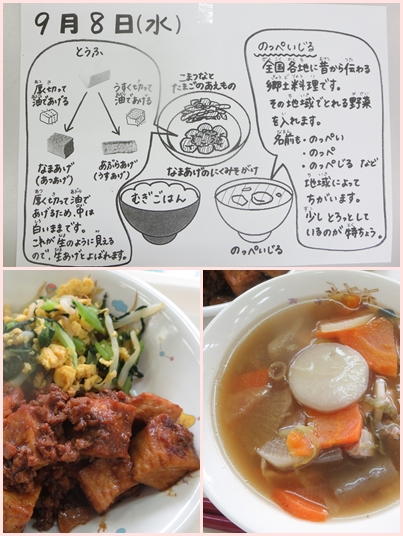 9月8日(水)
とうふ
厚く切って
油であげる
うすく切って
油であげる
なまあげ
(あつあげ)
あぶらあげ
(うすあげ)
厚く切って油で
あげるため、中は
白いままです。
これが生のように見える
ので、生あげとよばれます。
こまつなと
たまごのあえもの
なまあげのにくみそがけ
むぎごはん
のっぺいじる
のっぺいじる
全国各地に昔から伝わる
郷土料理です。
その地域でとれる野菜
を入れます。
名前も・のっぺい
・のっぺ
・のっぺじる など
地域によって
ちがいます。
少しとろっとして
いるのが特ちょう。